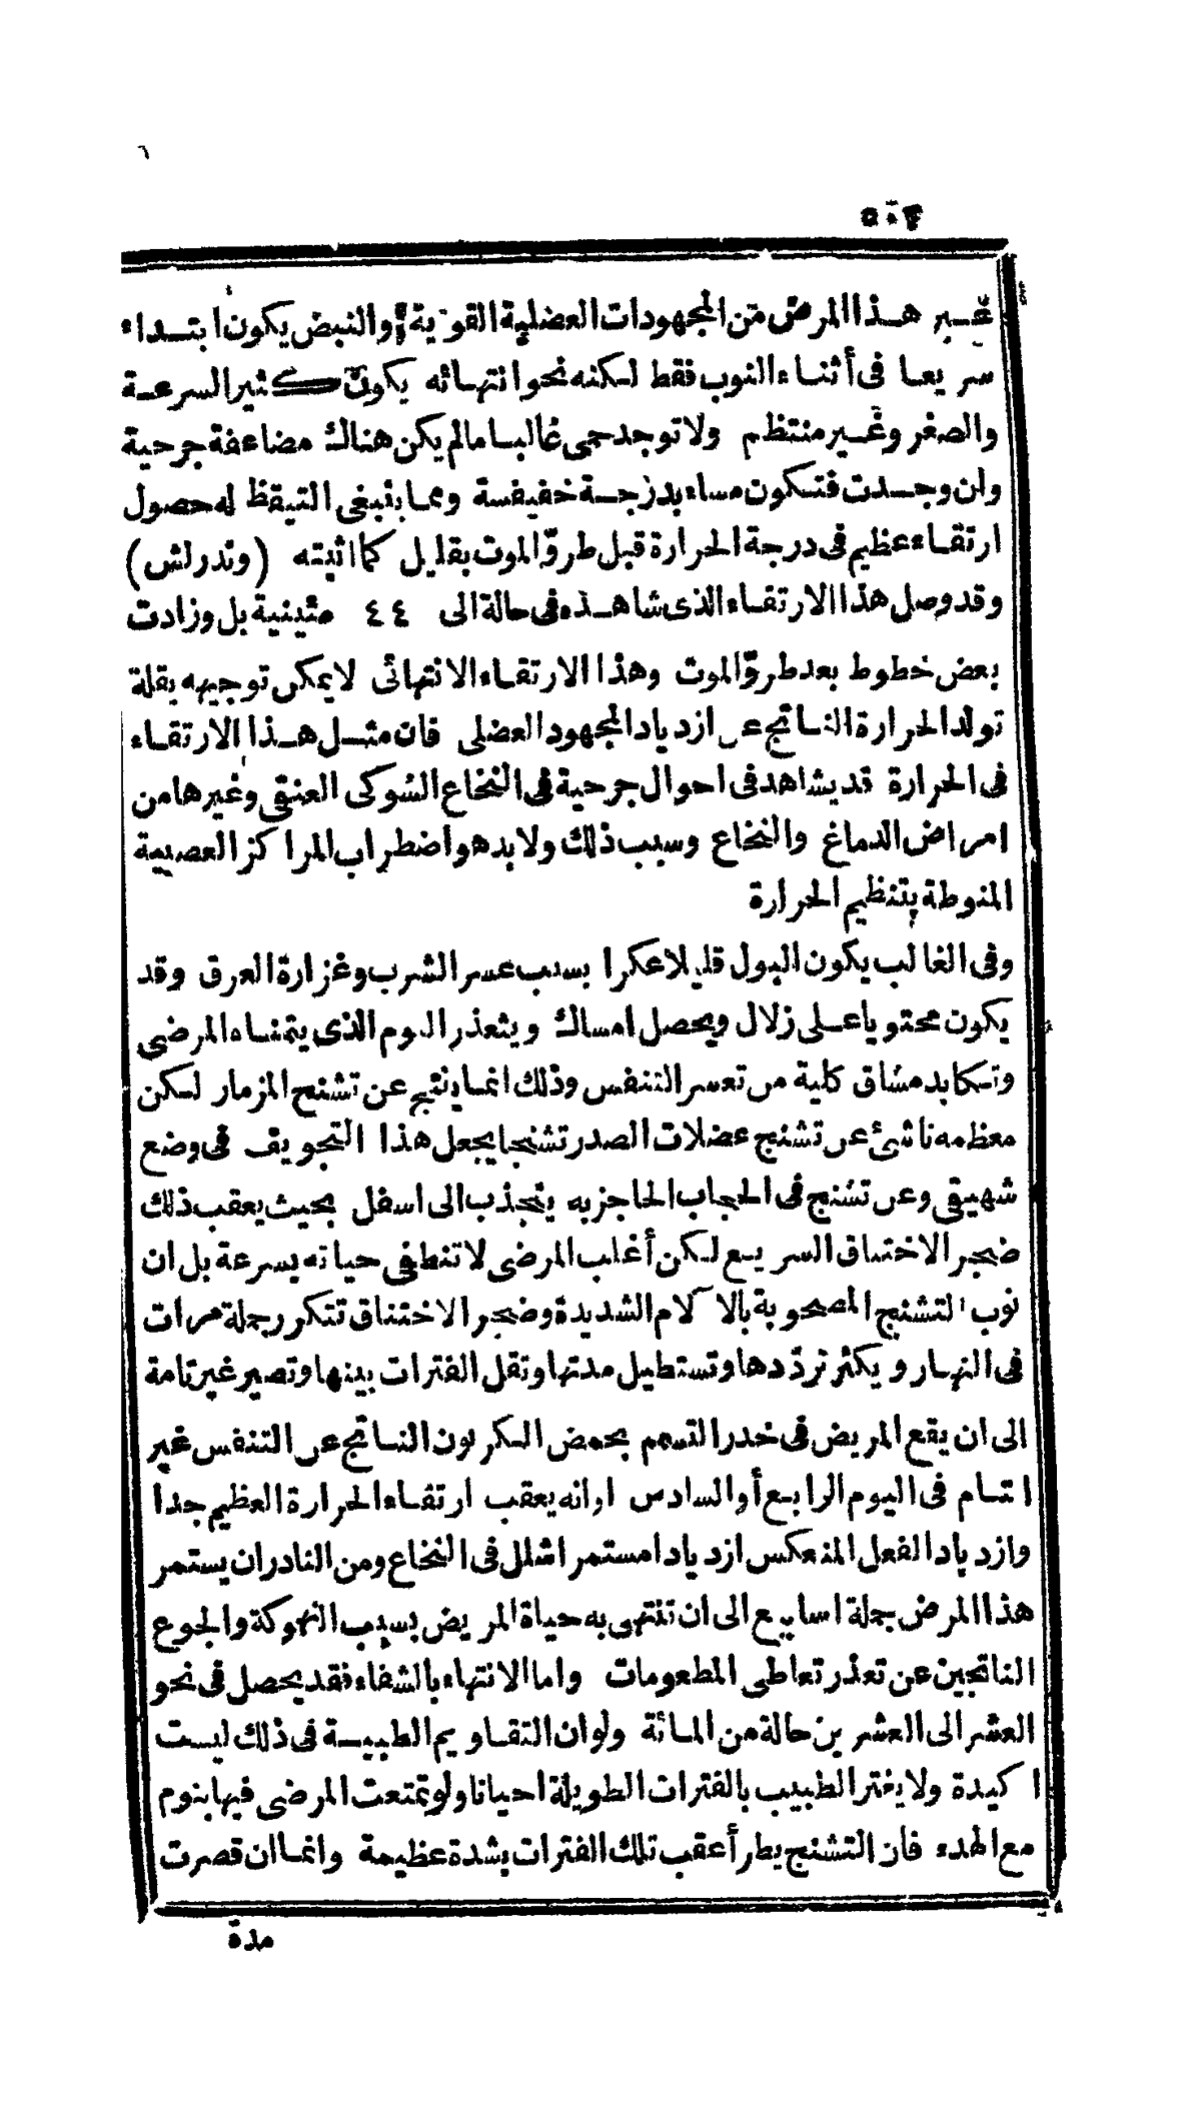 ٥٠٤
غير هذا المرض من المجهودات العضلية القوية والنبض يكون ابتداء
سريعا فى أثناء النوب فقط لكنه نحو انتهائه يكون كثير السرعة
والصغر وغير منتظم ولا توجد حمى غالبا مالم يكن هناك مضاعفة جرحية
وان وجدت فتكون مساء بدرجة خفيفة ومما ينبغى التيقظ له حصول
ارتقاء عظيم فى درجة الحرارة قبل طروّ الموت بقليل كما اثبته (وندرلش)
وقد وصل هذا الارتقاء الذى شاهده فى حالة الى ٤٤ مئينية بل وزادت
بعض خطوط بعد طروّ الموت وهذا الارتقاء الانتهائى لا يمكن توجيهه بقلة
تولد الحرارة الناتج عن ازدياد المجهود العضلى فان مثل هذا الارتقاء
فى الحرارة قد يشاهد فى احوال جرحية فى النخاع الشوكى العنقى وغيرها من
امراض الدماغ والنخاع وسبب ذلك ولا بد هو اضطراب المراكز العصبية
المنوطة بتنظيم الحرارة
وفى الغالب يكون البول قليلا عكرا بسبب عسر الشرب وغزارة العرق وقد
يكون محتويا على زلال ويحصل امساك ويتعذر النوم الذى يتمناه المرضى
وتكابد مشاق كلية من تعسر التنفس وذلك انما ينتج عن تشنج المزمار لكن
معظمه ناشئ عن تشنج عضلات الصدر تشنجا يجعل هذا التجويف فى وضع
شهيقى وعن تشنج فى الحجاب الحاجز به ينجذب الى اسفل بحيث يعقب ذلك
ضجر الاختناق السريع لكن أغلب المرضى لا تنطفى حياته بسرعة بل ان
نوب التشنج المصحوبة بالآلام الشديدة وضجر الاختناق تتكرر جملة مرات
فى النهار ويكثر تردّدها وتستطيل مدتها وتقل الفترات بينها وتصير غير تامة
الى ان يقع المريض فى خدر التسمم بحمض الكربون الناتج عن التنفس غير
التام فى اليوم الرابع أو السادس او انه يعقب ارتقاء الحرارة العظيم جدا
وازدياد الفعل المنعكس ازديادا مستمرا شلل فى النخاع ومن النادر ان يستمر
هذا المرض جملة اسابيع الى ان تنتهى به حياة المريض بسبب النهوكة والجوع
الناتجين عن تعذر تعاطى المطعومات واما الانتهاء بالشفاء فقد يحصل فى نحو
العشر الى العشرين حالة من المائة ولو ان التقاويم الطبية فى ذلك ليست
اكيدة ولا يغتر الطبيب بالفترات الطويلة احيانا ولو تمتعت المرضى فيها بنوم
مع الهدء فان التشنج يطرأ عقب تلك الفترات بشدة عظيمة وانما ان قصرت
مدة